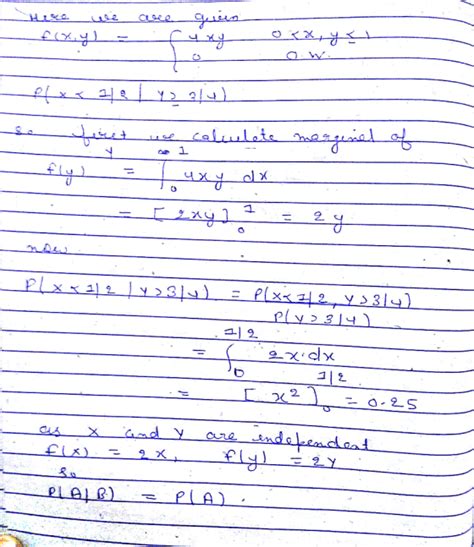 Here we are given
f(x,y) = { 4xy 0<x,y≤1
0 O.W.
P(X < 1/2 | Y ≥ 3/4)
so first we calculate marginal of
Y ∞ 1
f(y) = ∫₀ 4xy dx
= [2xy]₀¹ = 2y
now
P(X<1/2 | Y>3/4) = P(X<1/2, Y>3/4)
P(Y>3/4)
= ∫₀^1/2 2x.dx
= [x²]₀^1/2 = 0.25
as X and Y are independent
f(x) = 2x, f(y) = 2Y
so
P(A|B) = P(A).